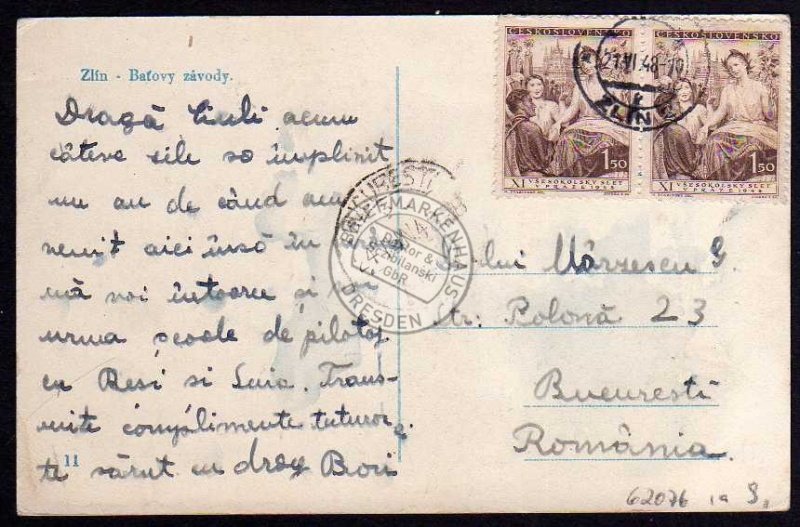 Zlín - Baťovy závody.
Dragă Giuli acum
câteva zile so împlinit
un an de când am
venit aici însă în
mă voi întoarce și voi
urma școale de pilotaj
cu Resi si Luia. Trans-
mite complimente tuturor
te sărut cu drag Bori
11
ČESKOSLOVENSKO
1.50
XI VŠESOKOLSKÝ SLET
V PRAZE 1948
ČESKOSLOVENSKO
1.50
XI VŠESOKOLSKÝ SLET
V PRAZE 1948
21.VI.48-19
ZLÍN
BUCUREȘTI
BRIEFMARKENHAUS
GbR
DRESDEN
Mărzescu G.
Str: Polonă 23
București
România.
62076